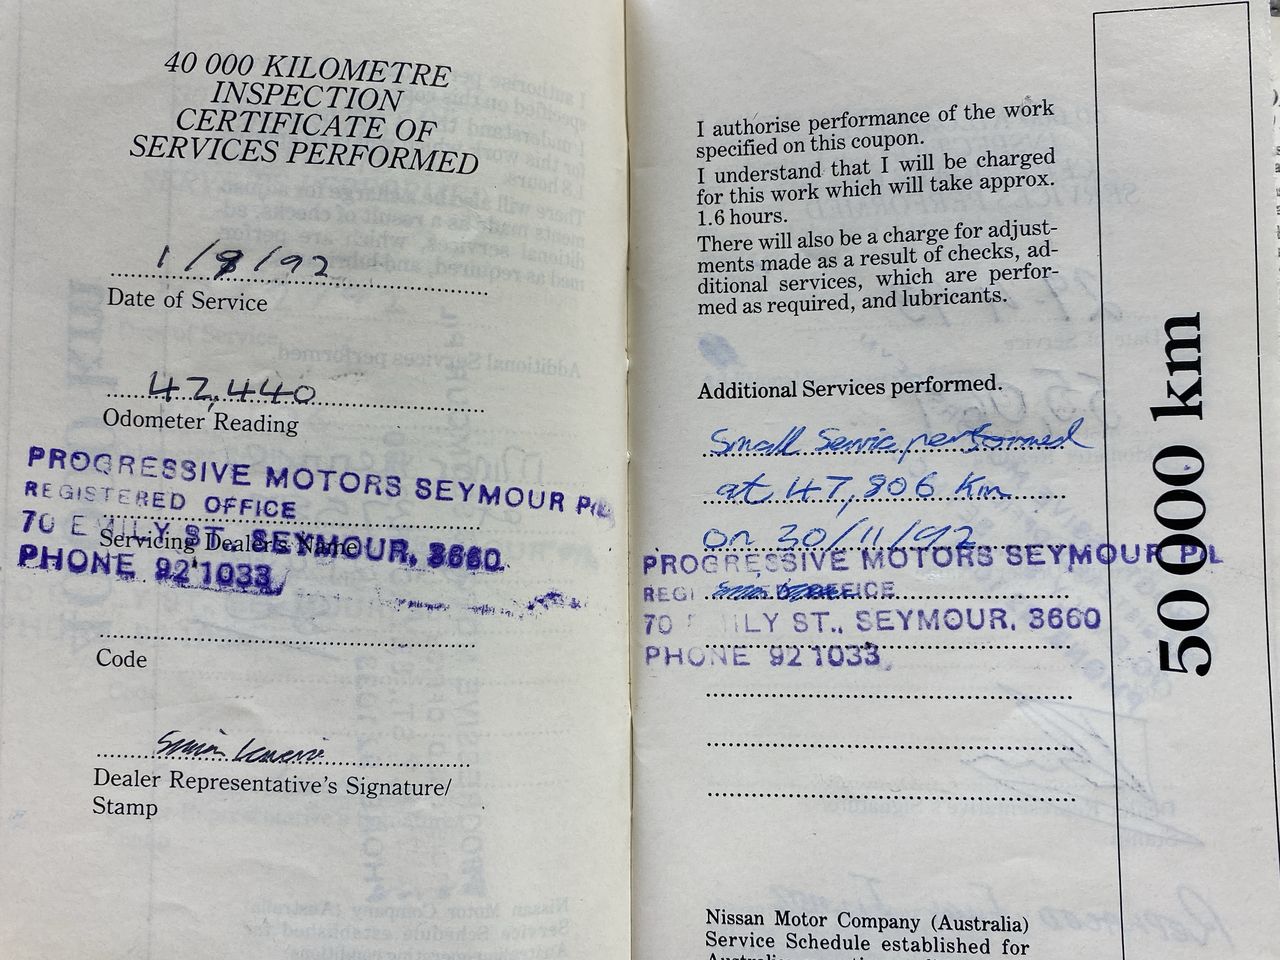 40 000 KILOMETRE
INSPECTION
CERTIFICATE OF
SERVICES PERFORMED
1/8/92
Date of Service
42,440
Odometer Reading
PROGRESSIVE MOTORS SEYMOUR P/L
REGISTERED OFFICE
70 EMILY ST., SEYMOUR, 3660
Servicing Dealer's Name
PHONE 92 1033
Code
Dealer Representative's Signature/
Stamp
I authorise performance of the work
specified on this coupon.
I understand that I will be charged
for this work which will take approx.
1.6 hours.
There will also be a charge for adjust-
ments made as a result of checks, ad-
ditional services, which are perfor-
med as required, and lubricants.
Additional Services performed.
Small Service performed
at 47,806 Km
on 30/11/92
PROGRESSIVE MOTORS SEYMOUR P/L
REGI OFFICE
70 EMILY ST., SEYMOUR, 3660
PHONE 92 1033
Nissan Motor Company (Australia)
Service Schedule established for
50 000 km